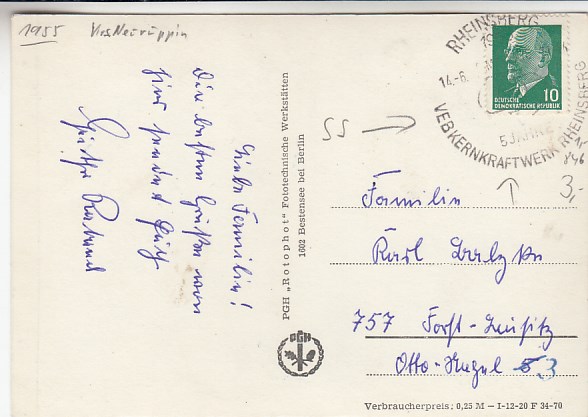 1955 Krs Neuruppin
Liebe Familie!
Die besten Grüße von
hier sendet Euch
RHEINSBERG
14.-6.
5 JAHRE
VEB KERNKRAFTWERK RHEINSBERG
DEUTSCHE
DEMOKRATISCHE REPUBLIK
10
SS
3,
PGH „Rotophot“ Fototechnische Werkstätten
1602 Bestensee bei Berlin
PGH
Familie
Karl
757 Forst-Lausitz
Otto-Nagel 3
Verbraucherpreis: 0,25 M – I-12-20 F 34-70